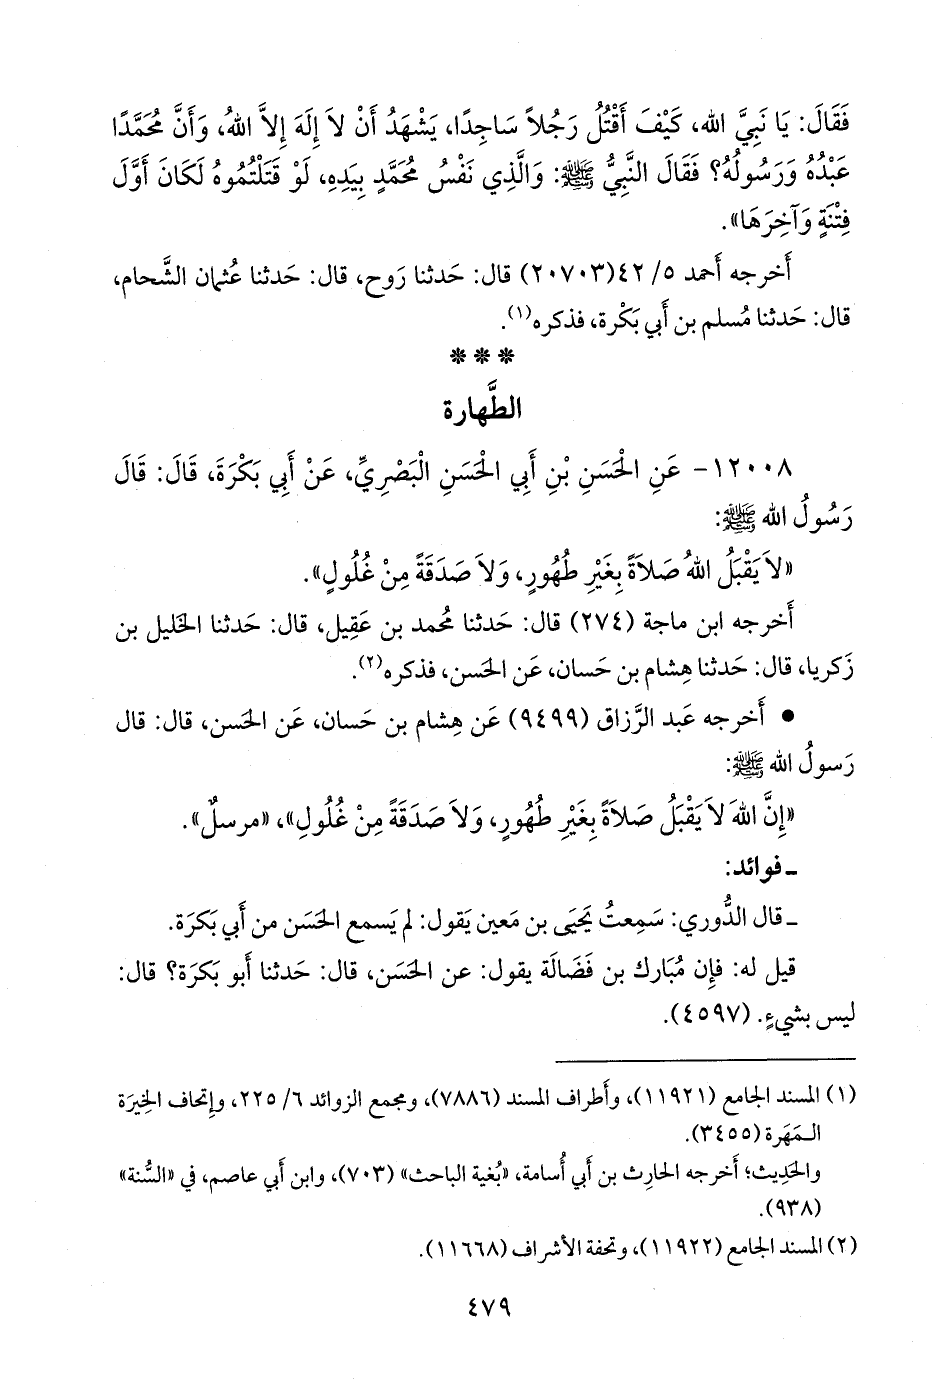 فَقَالَ: يَا نَبِيَّ الله، كَيْفَ أَقْتُلُ رَجُلاً سَاجِدًا، يَشْهَدُ أَنْ لاَ إِلَهَ إِلاَّ اللهُ، وَأَنَّ مُحَمَّدًا
عَبْدُهُ وَرَسُولُهُ؟ فَقَالَ النَّبِيُّ ﷺ: وَالَّذِي نَفْسُ مُحَمَّدٍ بِيَدِهِ، لَوْ قَتَلْتُمُوهُ لَكَانَ أَوَّلَ
فِتْنَةٍ وَآخِرَهَا».
أَخرجه أَحمد ٥/ ٤٢(٢٠٧٠٣) قال: حَدثنا رَوح، قال: حَدثنا عُثمان الشَّحام،
قال: حَدثنا مُسلم بن أَبي بَكْرة، فذكره(١).
***
الطَّهارة
١٢٠٠٨- عَنِ الْحَسَنِ بْنِ أَبِي الْحَسَنِ الْبَصْرِيِّ، عَنْ أَبِي بَكْرَةَ، قَالَ: قَالَ
رَسُولُ الله ﷺ:
«لاَ يَقْبَلُ اللهُ صَلاَةً بِغَيْرِ طُهُورٍ، وَلاَ صَدَقَةً مِنْ غُلُولٍ».
أَخرجه ابن ماجة (٢٧٤) قال: حَدثنا مُحمد بن عَقِيل، قال: حَدثنا الخَليل بن
زَكريا، قال: حَدثنا هِشام بن حَسان، عَن الحَسن، فذكره(٢).
● أَخرجه عَبد الرَّزاق (٩٤٩٩) عَن هِشام بن حَسان، عَن الحَسن، قال: قال
رَسولُ الله ﷺ:
«إِنَّ اللهَ لاَ يَقْبَلُ صَلاَةً بِغَيْرِ طُهُورٍ، وَلاَ صَدَقَةً مِنْ غُلُولٍ»، «مرسلٌ».
ـ فوائد:
ـ قال الدُّوري: سَمِعتُ يَحيَى بن مَعين يَقول: لم يَسمع الحَسَن من أَبي بَكرَة.
قيل له: فإِن مُبَارك بن فَضَالَة يقول: عن الحَسَن، قال: حَدثنا أَبو بَكرَة؟ قال:
ليس بشيءٍ. (٤٥٩٧).
(١) المسند الجامع (١١٩٢١)، وأَطراف المسند (٧٨٨٦)، ومجمع الزوائد ٦/ ٢٢٥، وإتحاف الخِيرَة
المَهَرة (٣٤٥٥).
والحَدِيث؛ أَخرجه الحارِث بن أَبي أُسامة، «بُغية الباحث» (٧٠٣)، وابن أَبي عاصم، في «السُّنة»
(٩٣٨).
(٢) المسند الجامع (١١٩٢٢)، وتحفة الأَشراف (١١٦٦٨).
٤٧٩